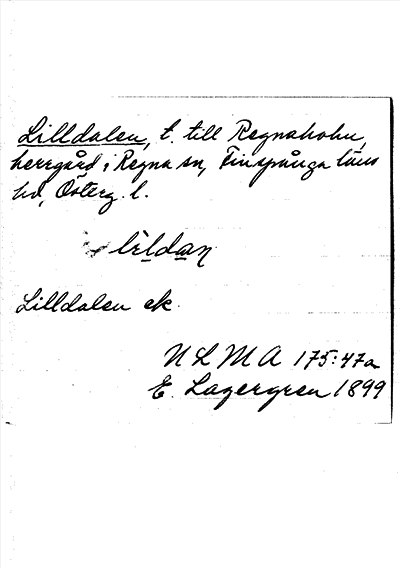 Lilldalen, t. till Regnaholm,
herrgård i Regna sn, Finspånga läns
hd, Österg. l.
lildan
Lilldalen ek.
ULMA 175:47a
E. Lagergren 1899